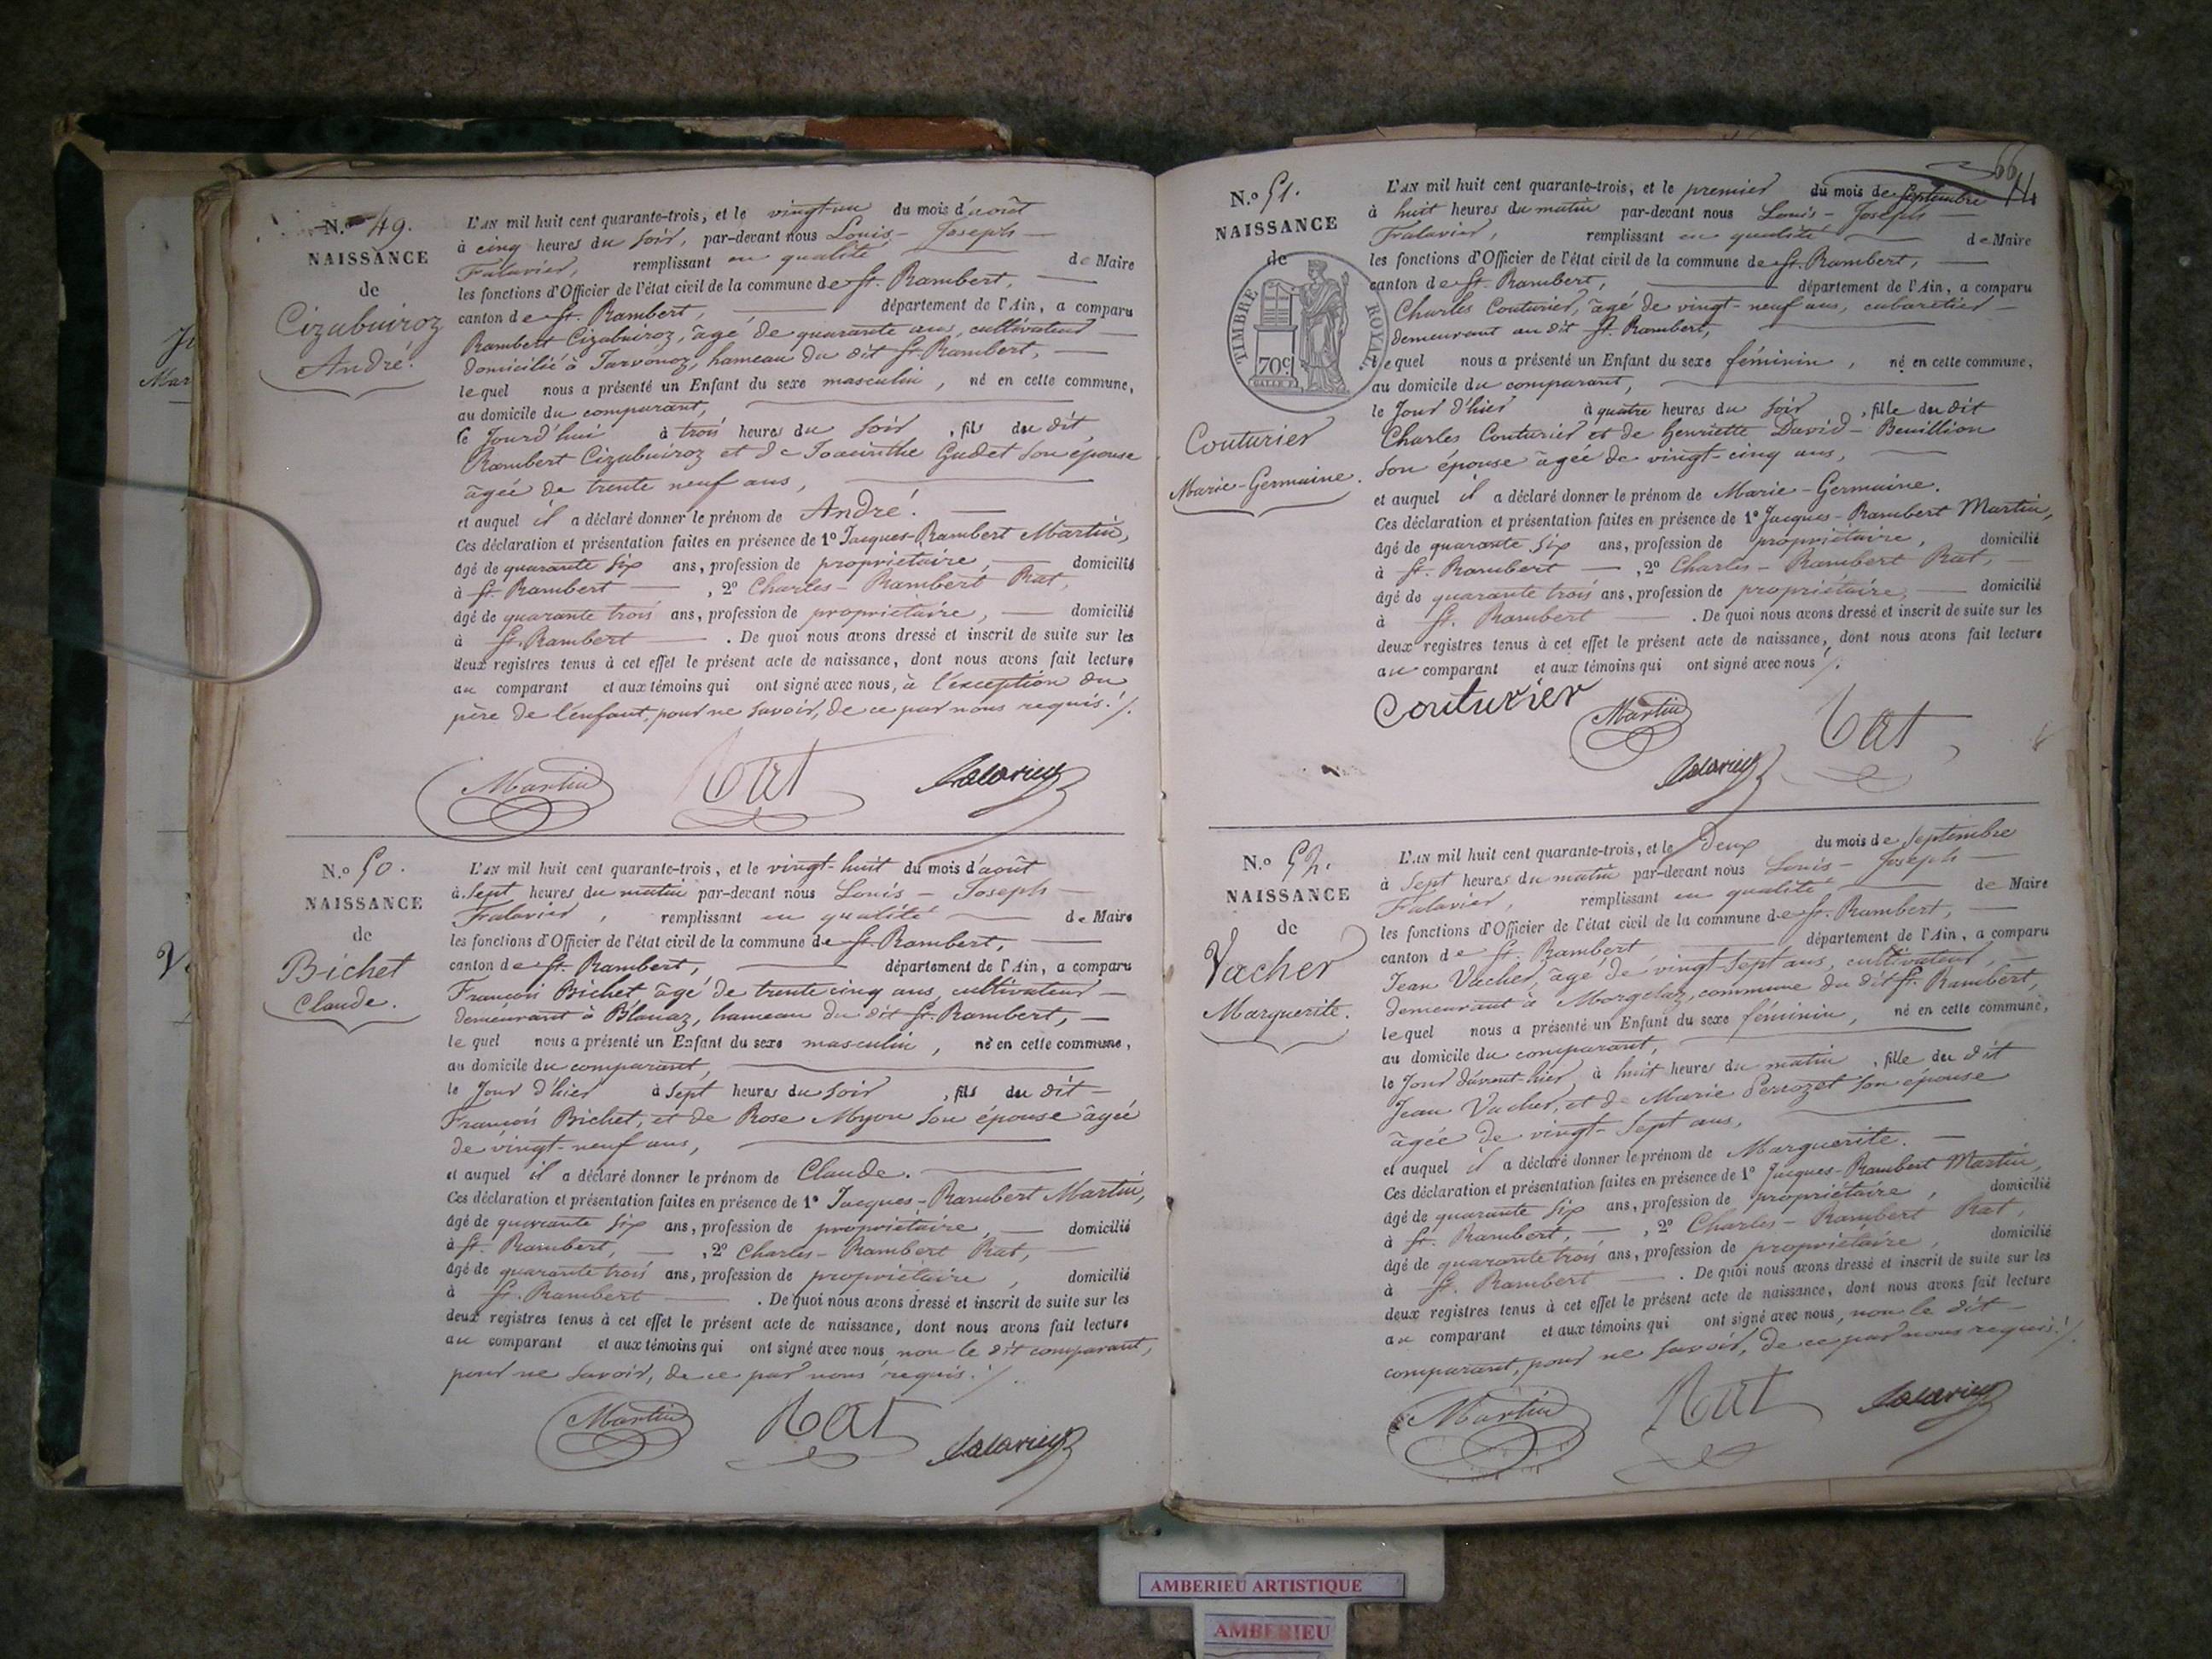 N.º 49.
NAISSANCE
de
Cizabuiroz
André.
L'AN mil huit cent quarante-trois, et le vingt-un du mois d'août
à cinq heures du soir, par-devant nous Louis - Joseph
Falavier, remplissant en qualité de Maire
les fonctions d'Officier de l'état civil de la commune de St. Rambert,
canton de St. Rambert, département de l'Ain, a comparu
Rambert Cizabuiroz, âgé de quarante ans, cultivateur
domicilié à Tarvonoz, hameau du dit St. Rambert,
lequel nous a présenté un Enfant du sexe masculin, né en cette commune,
au domicile du comparant,
le Jourd'hui à trois heures du soir, fils du dit
Rambert Cizabuiroz et de Joacinthe Gudet son épouse
âgée de trente neuf ans,
et auquel il a déclaré donner le prénom de André.
Ces déclaration et présentation faites en présence de 1º Jacques-Rambert Martin,
âgé de quarante six ans, profession de propriétaire, domicilié
à St. Rambert, 2º Charles - Rambert Rat,
âgé de quarante trois ans, profession de propriétaire, domicilié
à St. Rambert. De quoi nous avons dressé et inscrit de suite sur les
deux registres tenus à cet effet le présent acte de naissance, dont nous avons fait lecture
au comparant et aux témoins qui ont signé avec nous, à l'exception du
père de l'enfant, pour ne savoir, de ce par nous requis ./.
Martin Rat Falavier
N.º 50.
NAISSANCE
de
Bichet
Claude.
L'AN mil huit cent quarante-trois, et le vingt-huit du mois d'août
à Sept heures du matin par-devant nous Louis - Joseph
Falavier, remplissant en qualité de Maire
les fonctions d'Officier de l'état civil de la commune de St. Rambert,
canton de St. Rambert, département de l'Ain, a comparu
François Bichet âgé de trente cinq ans, cultivateur
demeurant à Blanaz, hameau du dit St. Rambert,
lequel nous a présenté un Enfant du sexe masculin, né en cette commune,
au domicile du comparant,
le Jour d'hier à Sept heures du soir, fils du dit
François Bichet, et de Rose Moyon son épouse âgée
de vingt-neuf ans,
et auquel il a déclaré donner le prénom de Claude.
Ces déclaration et présentation faites en présence de 1º Jacques-Rambert Martin,
âgé de quarante six ans, profession de propriétaire, domicilié
à St. Rambert, 2º Charles - Rambert Rat,
âgé de quarante trois ans, profession de propriétaire, domicilié
à St. Rambert. De quoi nous avons dressé et inscrit de suite sur les
deux registres tenus à cet effet le présent acte de naissance, dont nous avons fait lecture
au comparant et aux témoins qui ont signé avec nous non le dit comparant,
pour ne savoir, de ce par nous requis ./.
Martin Rat Falavier
66
N.º 51.
NAISSANCE
de
TIMBRE ROYAL
70c
Couturier
Marie-Germaine.
L'AN mil huit cent quarante-trois, et le premier du mois de Septembre
à huit heures du matin par-devant nous Louis - Joseph
Falavier, remplissant en qualité de Maire
les fonctions d'Officier de l'état civil de la commune de St. Rambert,
canton de St. Rambert, département de l'Ain, a comparu
Charles Couturier, âgé de vingt-neuf ans, cabaretier
demeurant au dit St. Rambert,
lequel nous a présenté un Enfant du sexe féminin, né en cette commune,
au domicile du comparant,
le Jour d'hier à quatre heures du soir, fille du dit
Charles Couturier et de henriette David-Beuillion
son épouse âgée de vingt-cinq ans,
et auquel il a déclaré donner le prénom de Marie-Germaine.
Ces déclaration et présentation faites en présence de 1º Jacques-Rambert Martin,
âgé de quarante six ans, profession de propriétaire, domicilié
à St. Rambert, 2º Charles - Rambert Rat,
âgé de quarante trois ans, profession de propriétaire, domicilié
à St. Rambert. De quoi nous avons dressé et inscrit de suite sur les
deux registres tenus à cet effet le présent acte de naissance, dont nous avons fait lecture
au comparant et aux témoins qui ont signé avec nous ./.
Couturier Martin Rat
Falavier
N.º 52.
NAISSANCE
de
Vacher
Marguerite.
L'AN mil huit cent quarante-trois, et le deux du mois de Septembre
à Sept heures du matin par-devant nous Louis - Joseph
Falavier, remplissant en qualité de Maire
les fonctions d'Officier de l'état civil de la commune de St. Rambert,
canton de St. Rambert, département de l'Ain, a comparu
Jean Vacher, âgé de vingt-sept ans, cultivateur,
demeurant à Morgelaz, commune du dit St. Rambert,
lequel nous a présenté un Enfant du sexe féminin, né en cette commune,
au domicile du comparant,
le Jour d'avant-hier, à huit heures du matin, fille du dit
Jean Vacher, et de Marie Perrozet son épouse
âgée de vingt-sept ans,
et auquel il a déclaré donner le prénom de Marguerite.
Ces déclaration et présentation faites en présence de 1º Jacques-Rambert Martin,
âgé de quarante six ans, profession de propriétaire, domicilié
à St. Rambert, 2º Charles - Rambert Rat,
âgé de quarante trois ans, profession de propriétaire, domicilié
à St. Rambert. De quoi nous avons dressé et inscrit de suite sur les
deux registres tenus à cet effet le présent acte de naissance, dont nous avons fait lecture
au comparant et aux témoins qui ont signé avec nous, non le dit
comparant, pour ne savoir, de ce par nous requis ./.
Martin Rat Falavier
AMBERIEU ARTISTIQUE
AMBERIEU